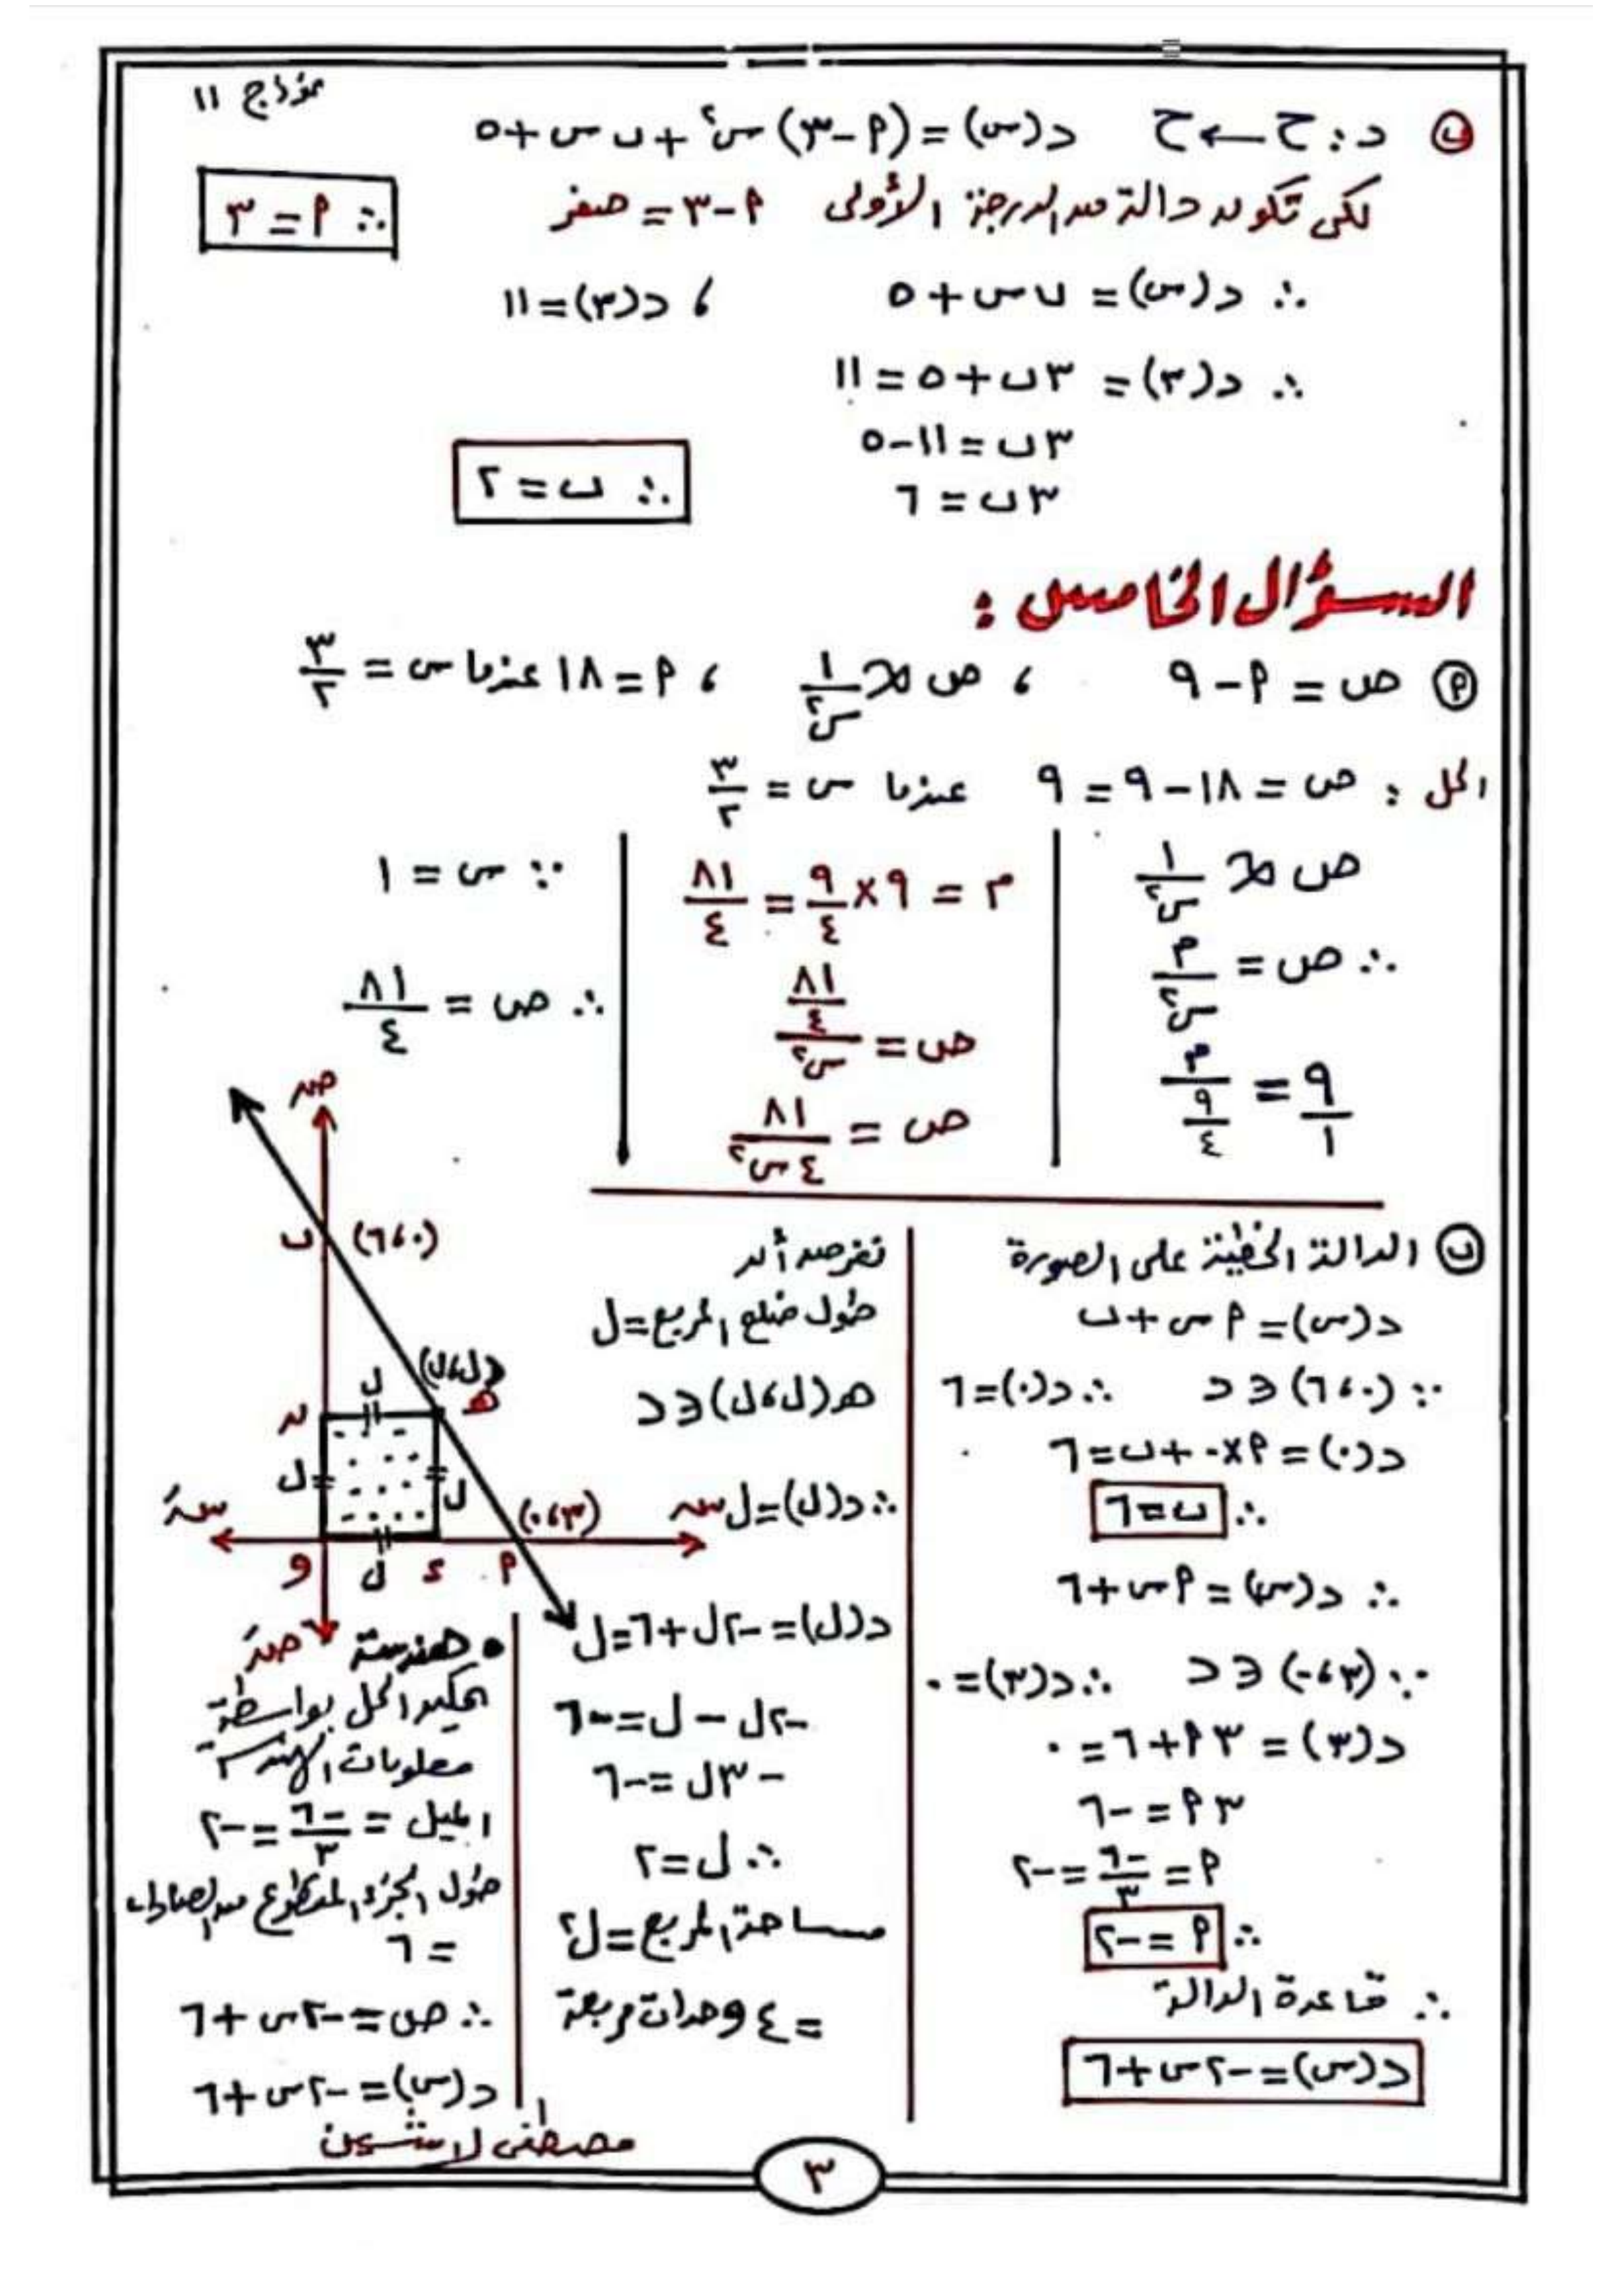 نموذج ١١
ب د : ح ← ح د(س) = (٢ - ٣) س٢ + ب س + ٥
لكى تكون دالة من الدرجة الأولى ٢ - ٣ = صفر ∴ ٢ = ٣
∴ د(س) = ب س + ٥ ، د(٣) = ١١
∴ د(٣) = ٣ب + ٥ = ١١
٣ب = ١١ - ٥
٣ب = ٦ ∴ ب = ٢
السؤال الخامس :
٢ ص = ٢ - ٩ ، ص ∝ ١/س٢ ، ٢ = ١٨ عندما س = ٣/٢
الحل : ص = ١٨ - ٩ = ٩ عندما س = ٣/٢
ص ∝ ١/س٢
∴ ص = م/س٢
٩/١ = م/(٩/٤)
م = ٩ × ٩/٤ = ٨١/٤
ص = (٨١/٤)/س٢
ص = ٨١/٤س٢
∵ س = ١
∴ ص = ٨١/٤
ب الدالة الخطية على الصورة
د(س) = ٢ س + ب
∵ (٠، ٦) ∈ د ∴ د(٠) = ٦
د(٠) = ٢ × ٠ + ب = ٦
∴ ب = ٦
∴ د(س) = ٢س + ٦
∵ (٣، ٠) ∈ د ∴ د(٣) = ٠
د(٣) = ٣ ٢ + ٦ = ٠
٣ ٢ = -٦
٢ = -٦/٣ = -٢
∴ ٢ = -٢
∴ قاعدة الدالة
د(س) = -٢س + ٦
نفرض أن
طول ضلع المربع = ل
هـ (ل، ل) ∈ د
∴ د(ل) = ل
د(ل) = -٢ل + ٦ = ل
-٢ل - ل = -٦
-٣ل = -٦
∴ ل = ٢
مساحة المربع = ل٢
= ٤ وحدات مربعة
صـ
ب (٠، ٦)
(ل، ل)
ل هـ
ن
ل ل
(٣، ٠)
سـَ سـ
و ل ء ٢
صـَ
• هندسة
يمكن الحل بواسطة
معلومات الهندسة
الميل = -٦/٣ = -٢
طول الجزء المقطوع من الصادات
= ٦
∴ ص = -٢س + ٦
د(س) = -٢س + ٦
مصطفى لاشين
٣